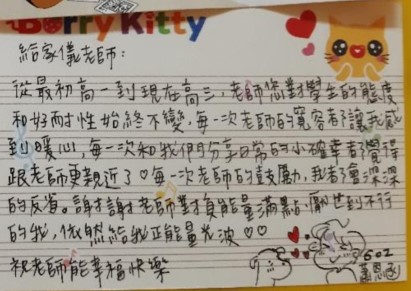 Berry Kitty
給家儀老師：
從最初高一到現在高三，老師您對學生的態度
和好耐性始終不變，每一次老師的寬容都讓我感
到暖心，每一次和我們分享日常的小確幸都覺得
跟老師更親近了♡每一次老師的鼓勵，我都會深深
的反省。謝謝老師對負能量滿點 到不行
的我，依然給我正能量光波♡♡
祝老師能幸福快樂
602
恩